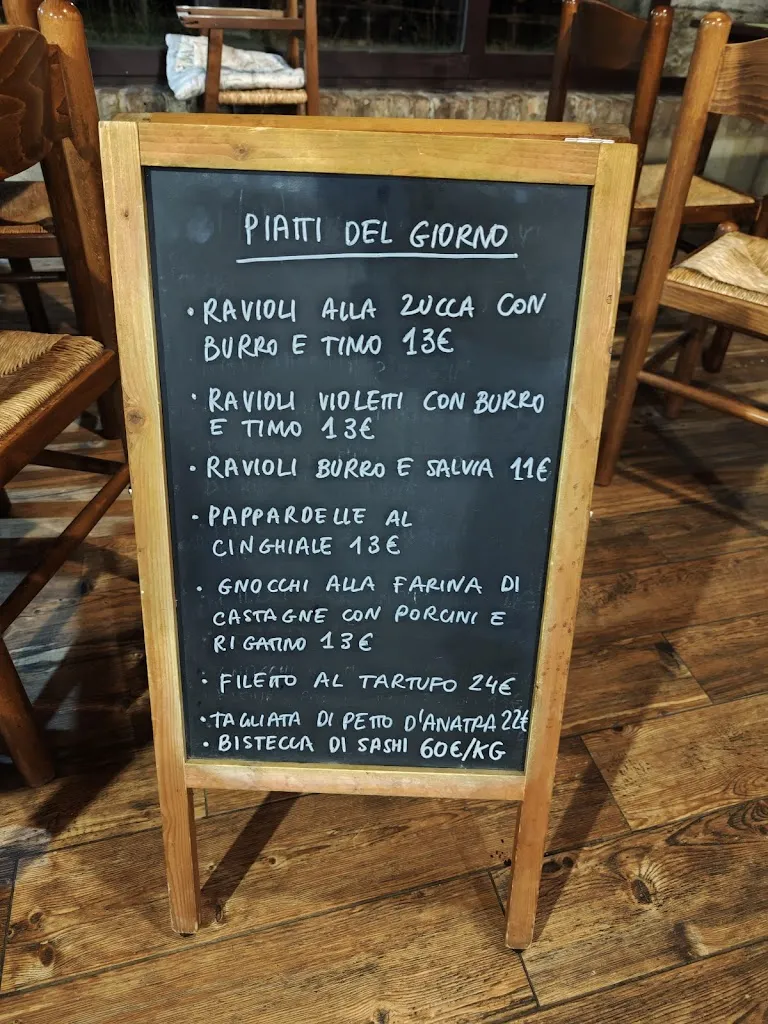 PIATTI DEL GIORNO
• RAVIOLI ALLA ZUCCA CON
BURRO E TIMO 13€
• RAVIOLI VIOLETTI CON BURRO
E TIMO 13€
• RAVIOLI BURRO E SALVIA 11€
• PAPPARDELLE AL
CINGHIALE 13€
• GNOCCHI ALLA FARINA DI
CASTAGNE CON PORCINI E
RIGATINO 13€
• FILETTO AL TARTUFO 24€
• TAGLIATA DI PETTO D'ANATRA 22€
• BISTECCA DI SASHI 60€/KG